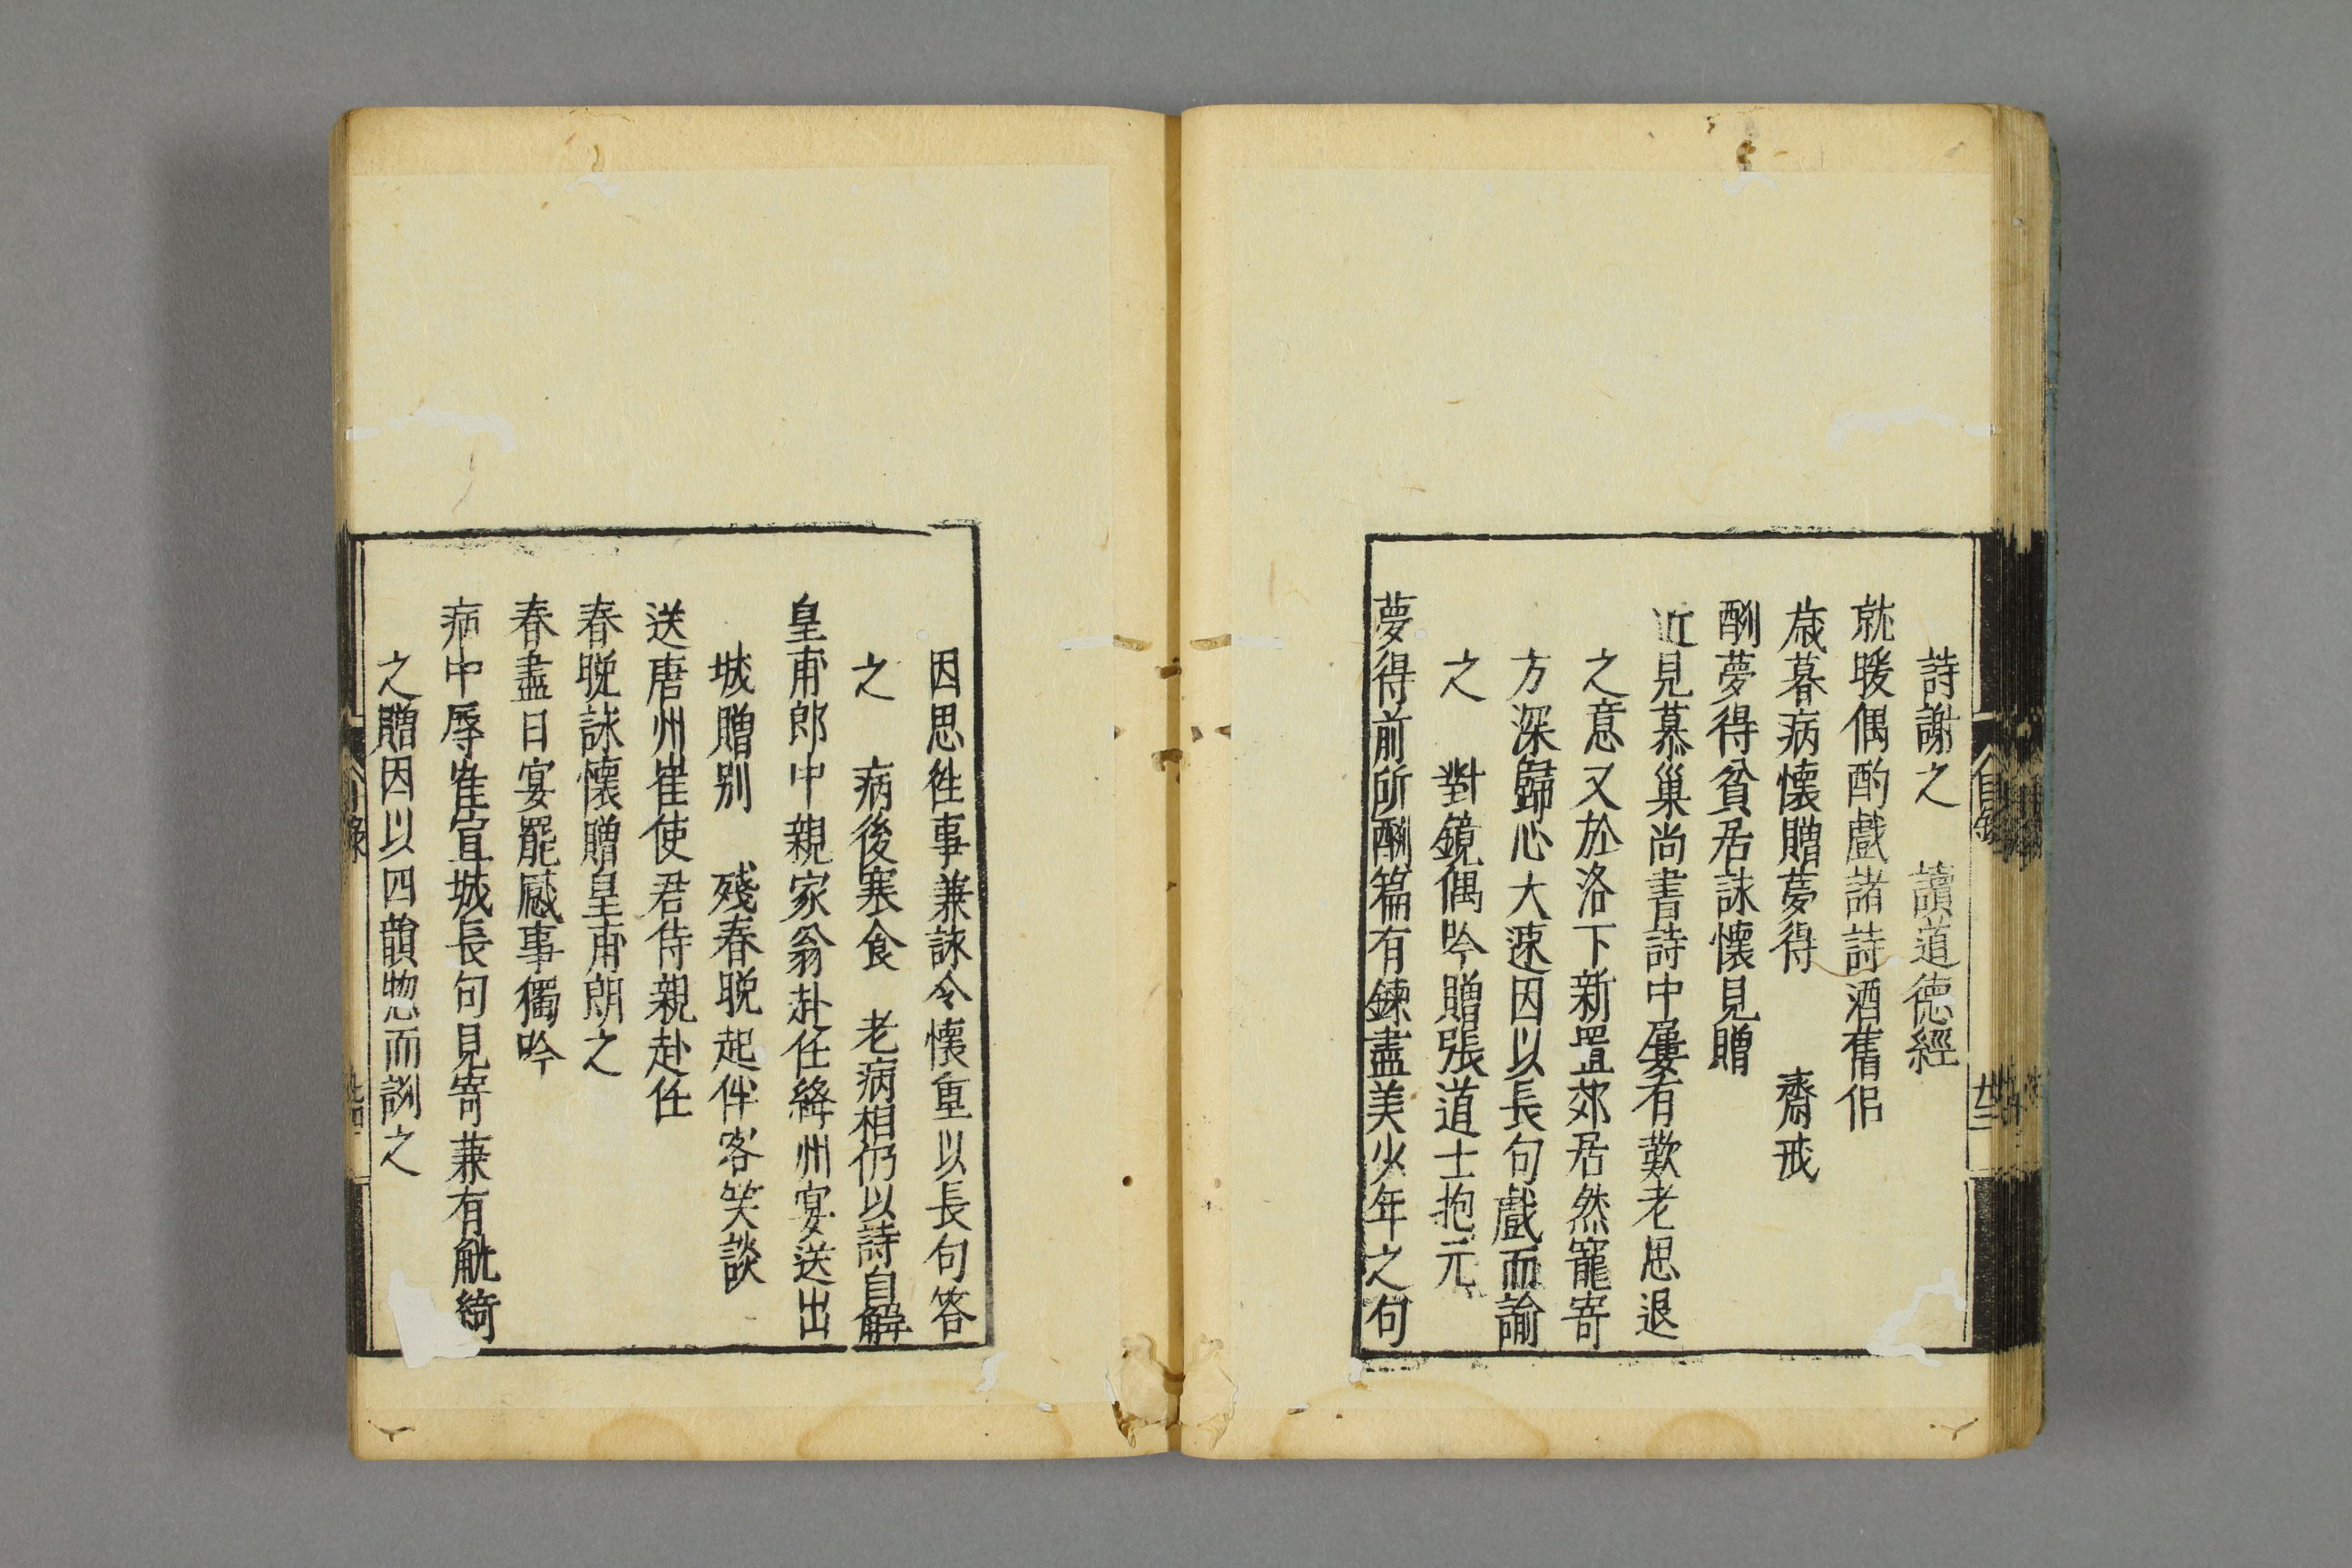 詩謝之 讀道德經
就暖偶酌戲諸詩酒舊侶
歳暮病懷贈夢得 齋戒
酬夢得貧居詠懷見贈
近見慕巢尚書詩中屢有歎老思退
之意又於洛下新置郊居然寵寄
方深歸心大速因以長句戲而諭
之 對鏡偶吟贈張道士抱元
夢得前所酬篇有鍊盡美少年之句
因思徃事兼詠今懷重以長句答
之 病後寒食 老病相仍以詩自解
皇甫郎中親家翁赴任絳州宴送出
城贈別 殘春晚起伴客笑談
送唐州崔使君侍親赴任
春晚詠懷贈皇甫朗之
春盡日宴罷感事獨吟
病中辱崔宣城長句見寄兼有觥綺
之贈因以四韻惣而詶之